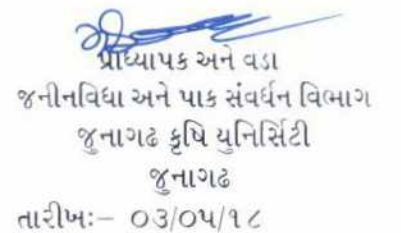 પ્રાધ્યાપક અને વડા
જનીનવિધા અને પાક સંવર્ધન વિભાગ
જુનાગઢ કૃષિ યુનિર્સિટી
જુનાગઢ
તારીખઃ– ૦૩/૦૫/૧૮